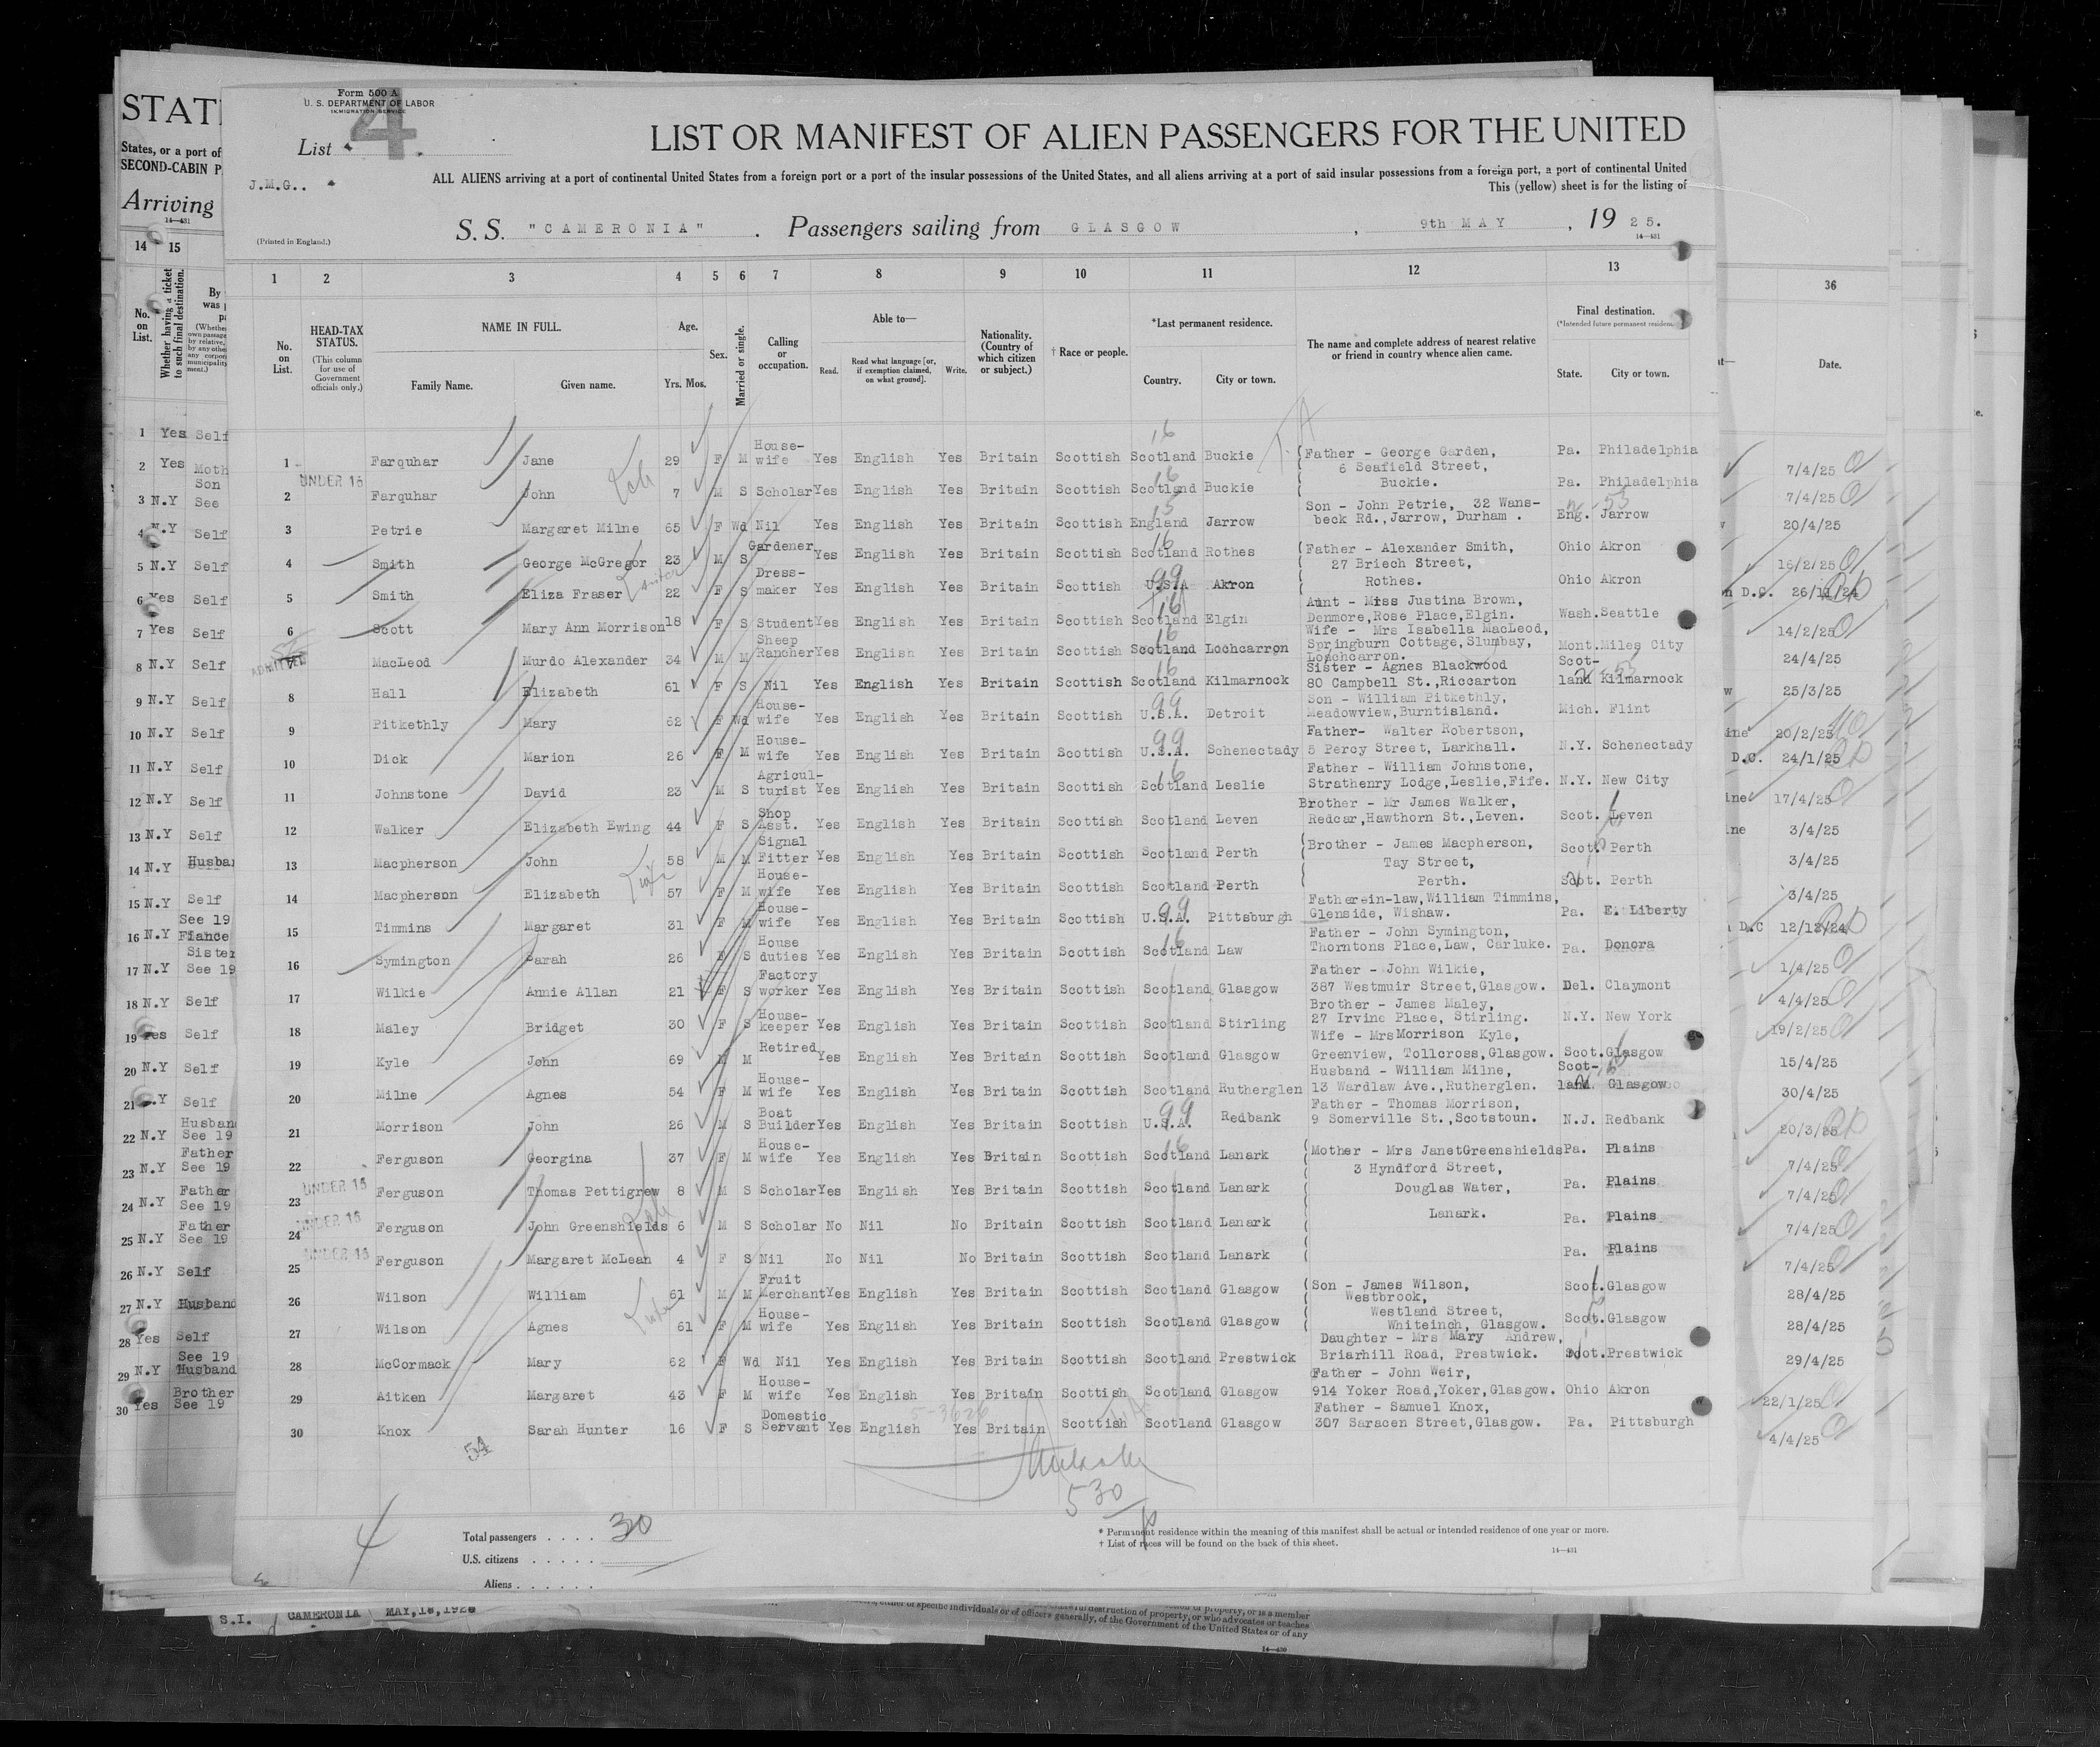 Form 500 A
U. S. DEPARTMENT OF LABOR
IMMIGRATION SERVICE
List 4
J.M.G..
(Printed in England.)
LIST OR MANIFEST OF ALIEN PASSENGERS FOR THE UNITED
ALL ALIENS arriving at a port of continental United States from a foreign port or a port of the insular possessions of the United States, and all aliens arriving at a port of said insular possessions from a foreign port, a port of continental United
This (yellow) sheet is for the listing of
S. S. "CAMERONIA" . Passengers sailing from GLASGOW , 9th MAY , 19 25.
14—431
1 2 3 4 5 6 7 8 9 10 11 12 13
No. on List.
HEAD-TAX STATUS.
(This column for use of Government officials only.)
NAME IN FULL.
Family Name. Given name.
Age.
Yrs. Mos.
Sex.
Married or single.
Calling or occupation.
Able to—
Read. Read what language [or, if exemption claimed, on what ground]. Write.
Nationality. (Country of which citizen or subject.)
† Race or people.
*Last permanent residence.
Country. City or town.
The name and complete address of nearest relative or friend in country whence alien came.
Final destination.
(*Intended future permanent residence.)
State. City or town.
1 Farquhar Jane 29 F M House-wife Yes English Yes Britain Scottish Scotland Buckie Father - George Garden, 6 Seafield Street, Buckie. Pa. Philadelphia
UNDER 16
2 Farquhar John 7 M S Scholar Yes English Yes Britain Scottish Scotland Buckie Pa. Philadelphia
3 Petrie Margaret Milne 65 F Wd Nil Yes English Yes Britain Scottish England Jarrow Son - John Petrie, 32 Wans-beck Rd.,Jarrow, Durham . Eng. Jarrow
4 Smith George McGregor 23 M S Gardener Yes English Yes Britain Scottish Scotland Rothes Father - Alexander Smith, 27 Briech Street, Rothes. Ohio Akron
5 Smith Eliza Fraser 22 F S Dress-maker Yes English Yes Britain Scottish U.S.A Akron Ohio Akron
6 Scott Mary Ann Morrison 18 F S Student Yes English Yes Britain Scottish Scotland Elgin Aunt - Miss Justina Brown, Denmore,Rose Place,Elgin. Wash. Seattle
ADMITTED
7 MacLeod Murdo Alexander 34 M M Sheep Rancher Yes English Yes Britain Scottish Scotland Lochcarron Wife - Mrs Isabella MacLeod, Springburn Cottage,Slumbay, Lochcarron. Mont. Miles City
8 Hall Elizabeth 61 F S Nil Yes English Yes Britain Scottish Scotland Kilmarnock Sister - Agnes Blackwood 80 Campbell St.,Riccarton Scot-land Kilmarnock
9 Pitkethly Mary 62 F Wd House-wife Yes English Yes Britain Scottish U.S.A. Detroit Son - William Pitkethly, Meadowview,Burntisland. Mich. Flint
10 Dick Marion 26 F M House-wife Yes English Yes Britain Scottish U.S.A. Schenectady Father- Walter Robertson, 5 Percy Street, Larkhall. N.Y. Schenectady
11 Johnstone David 23 M S Agricul-turist Yes English Yes Britain Scottish Scotland Leslie Father - William Johnstone, Strathenry Lodge,Leslie,Fife. N.Y. New City
12 Walker Elizabeth Ewing 44 F S Shop Asst. Yes English Yes Britain Scottish Scotland Leven Brother - Mr James Walker, Redcar,Hawthorn St.,Leven. Scot. Leven
13 Macpherson John 58 M M Signal Fitter Yes English Yes Britain Scottish Scotland Perth Brother - James Macpherson, Tay Street, Perth. Scot. Perth
14 Macpherson Elizabeth 57 F M House-wife Yes English Yes Britain Scottish Scotland Perth Scot. Perth
15 Timmins Margaret 31 F M House-wife Yes English Yes Britain Scottish U.S.A. Pittsburgh Father-in-law,William Timmins, Glenside, Wishaw. Pa. E. Liberty
16 Symington Sarah 26 F S House duties Yes English Yes Britain Scottish Scotland Law Father - John Symington, Thorntons Place,Law, Carluke. Pa. Donora
17 Wilkie Annie Allan 21 F S Factory worker Yes English Yes Britain Scottish Scotland Glasgow Father - John Wilkie, 387 Westmuir Street,Glasgow. Del. Claymont
18 Maley Bridget 30 F S House-keeper Yes English Yes Britain Scottish Scotland Stirling Brother - James Maley, 27 Irvine Place, Stirling. N.Y. New York
19 Kyle John 69 M M Retired Yes English Yes Britain Scottish Scotland Glasgow Wife - Mrs Morrison Kyle, Greenview, Tollcross,Glasgow. Scot. Glasgow
20 Milne Agnes 54 F M House-wife Yes English Yes Britain Scottish Scotland Rutherglen Husband - William Milne, 13 Wardlaw Ave.,Rutherglen. Scot-land Glasgow
21 Morrison John 26 M S Boat Builder Yes English Yes Britain Scottish U.S.A. Redbank Father - Thomas Morrison, 9 Somerville St.,Scotstoun. N.J. Redbank
22 Ferguson Georgina 37 F M House-wife Yes English Yes Britain Scottish Scotland Lanark Mother - Mrs JanetGreenshields 3 Hyndford Street, Douglas Water, Lanark. Pa. Plains
UNDER 16
23 Ferguson Thomas Pettigrew 8 M S Scholar Yes English Yes Britain Scottish Scotland Lanark Pa. Plains
UNDER 16
24 Ferguson John Greenshields 6 M S Scholar No Nil No Britain Scottish Scotland Lanark Pa. Plains
UNDER 16
25 Ferguson Margaret McLean 4 F S Nil No Nil No Britain Scottish Scotland Lanark Pa. Plains
26 Wilson William 61 M M Fruit Merchant Yes English Yes Britain Scottish Scotland Glasgow Son - James Wilson, Westbrook, Westland Street, Whiteinch, Glasgow. Scot. Glasgow
27 Wilson Agnes 61 F M House-wife Yes English Yes Britain Scottish Scotland Glasgow Scot. Glasgow
28 McCormack Mary 62 F Wd Nil Yes English Yes Britain Scottish Scotland Prestwick Daughter - Mrs Mary Andrew, Briarhill Road, Prestwick. Scot. Prestwick
29 Aitken Margaret 43 F M House-wife Yes English Yes Britain Scottish Scotland Glasgow Father - John Weir, 914 Yoker Road,Yoker,Glasgow. Ohio Akron
30 Knox Sarah Hunter 16 F S Domestic Servant Yes English Yes Britain Scottish Scotland Glasgow Father - Samuel Knox, 307 Saracen Street,Glasgow. Pa. Pittsburgh
54
530
4
Total passengers . . . . 30
U.S. citizens . . . . .
Aliens . . . . . .
* Permanent residence within the meaning of this manifest shall be actual or intended residence of one year or more.
† List of races will be found on the back of this sheet.
14—431
STAT
States, or a port of
SECOND-CABIN P
Arriving
14—431
14 15
No. on List.
Whether having a ticket to such final destination.
1 Yes Self
2 Yes Moth
3 N.Y Son See
4 N.Y Self
5 N.Y Self
6 Yes Self
7 Yes Self
8 N.Y Self
9 N.Y Self
10 N.Y Self
11 N.Y Self
12 N.Y Self
13 N.Y Self
14 N.Y Husba
15 N.Y Self
16 N.Y See 19 Fiance
17 N.Y Sister See 19
18 N.Y Self
19 Yes Self
20 N.Y Self
21 N.Y Self
22 N.Y Husban See 19
23 N.Y Father See 19
24 N.Y Father See 19
25 N.Y Father See 19
26 N.Y Self
27 N.Y Husband
28 Yes Self
29 N.Y See 19 Husband
30 Yes Brother See 19
36
Date.
7/4/25
7/4/25
20/4/25
16/2/25
D.C. 26/11/24
14/2/25
24/4/25
25/3/25
20/2/25
D.C. 24/1/25
17/4/25
3/4/25
3/4/25
3/4/25
D.C 12/12/24
1/4/25
4/4/25
19/2/25
15/4/25
30/4/25
20/3/25
7/4/25
7/4/25
7/4/25
7/4/25
28/4/25
28/4/25
29/4/25
22/1/25
4/4/25
S.I. CAMERONIA MAY,18,1925
destruction of property, or who advocates or teaches
of specific individuals or of officers generally, of the Government of the United States or of any
14—430